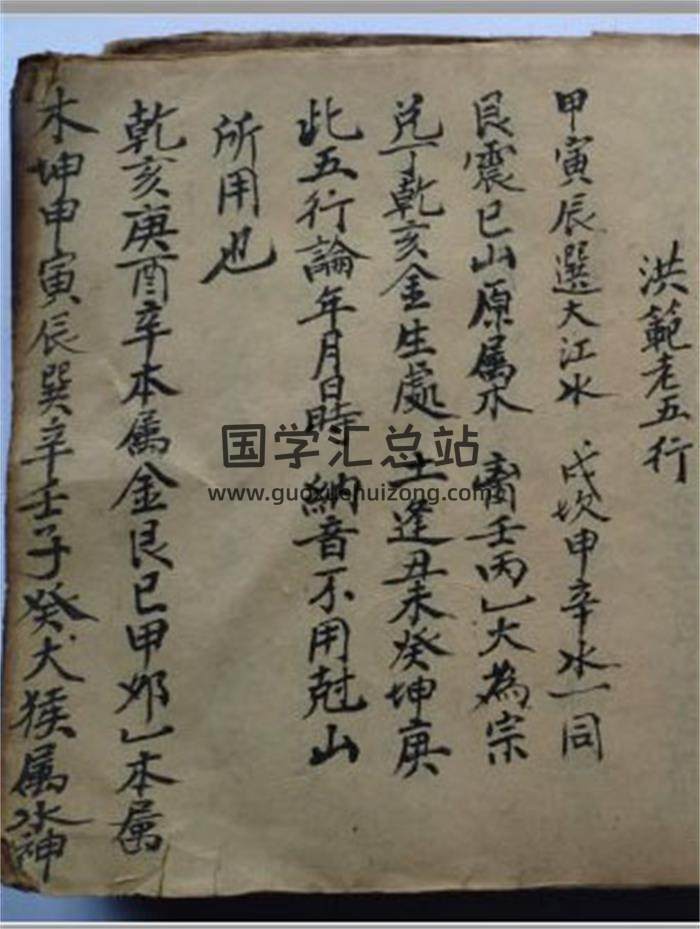 洪範老五行
甲寅辰選大江水 戊坎申辛水一同
艮震巳山原属木 离壬丙乙火為宗
兑丁乾亥金生處 土逢丑未癸坤庚
此五行論年月日時 納音不用尅山
所用也
乾亥庚酉辛本属金艮巳甲卯乙本属
木坤申寅辰巽辛壬子癸犬猴属水神
国学汇总站
www.guoxuehuizong.com